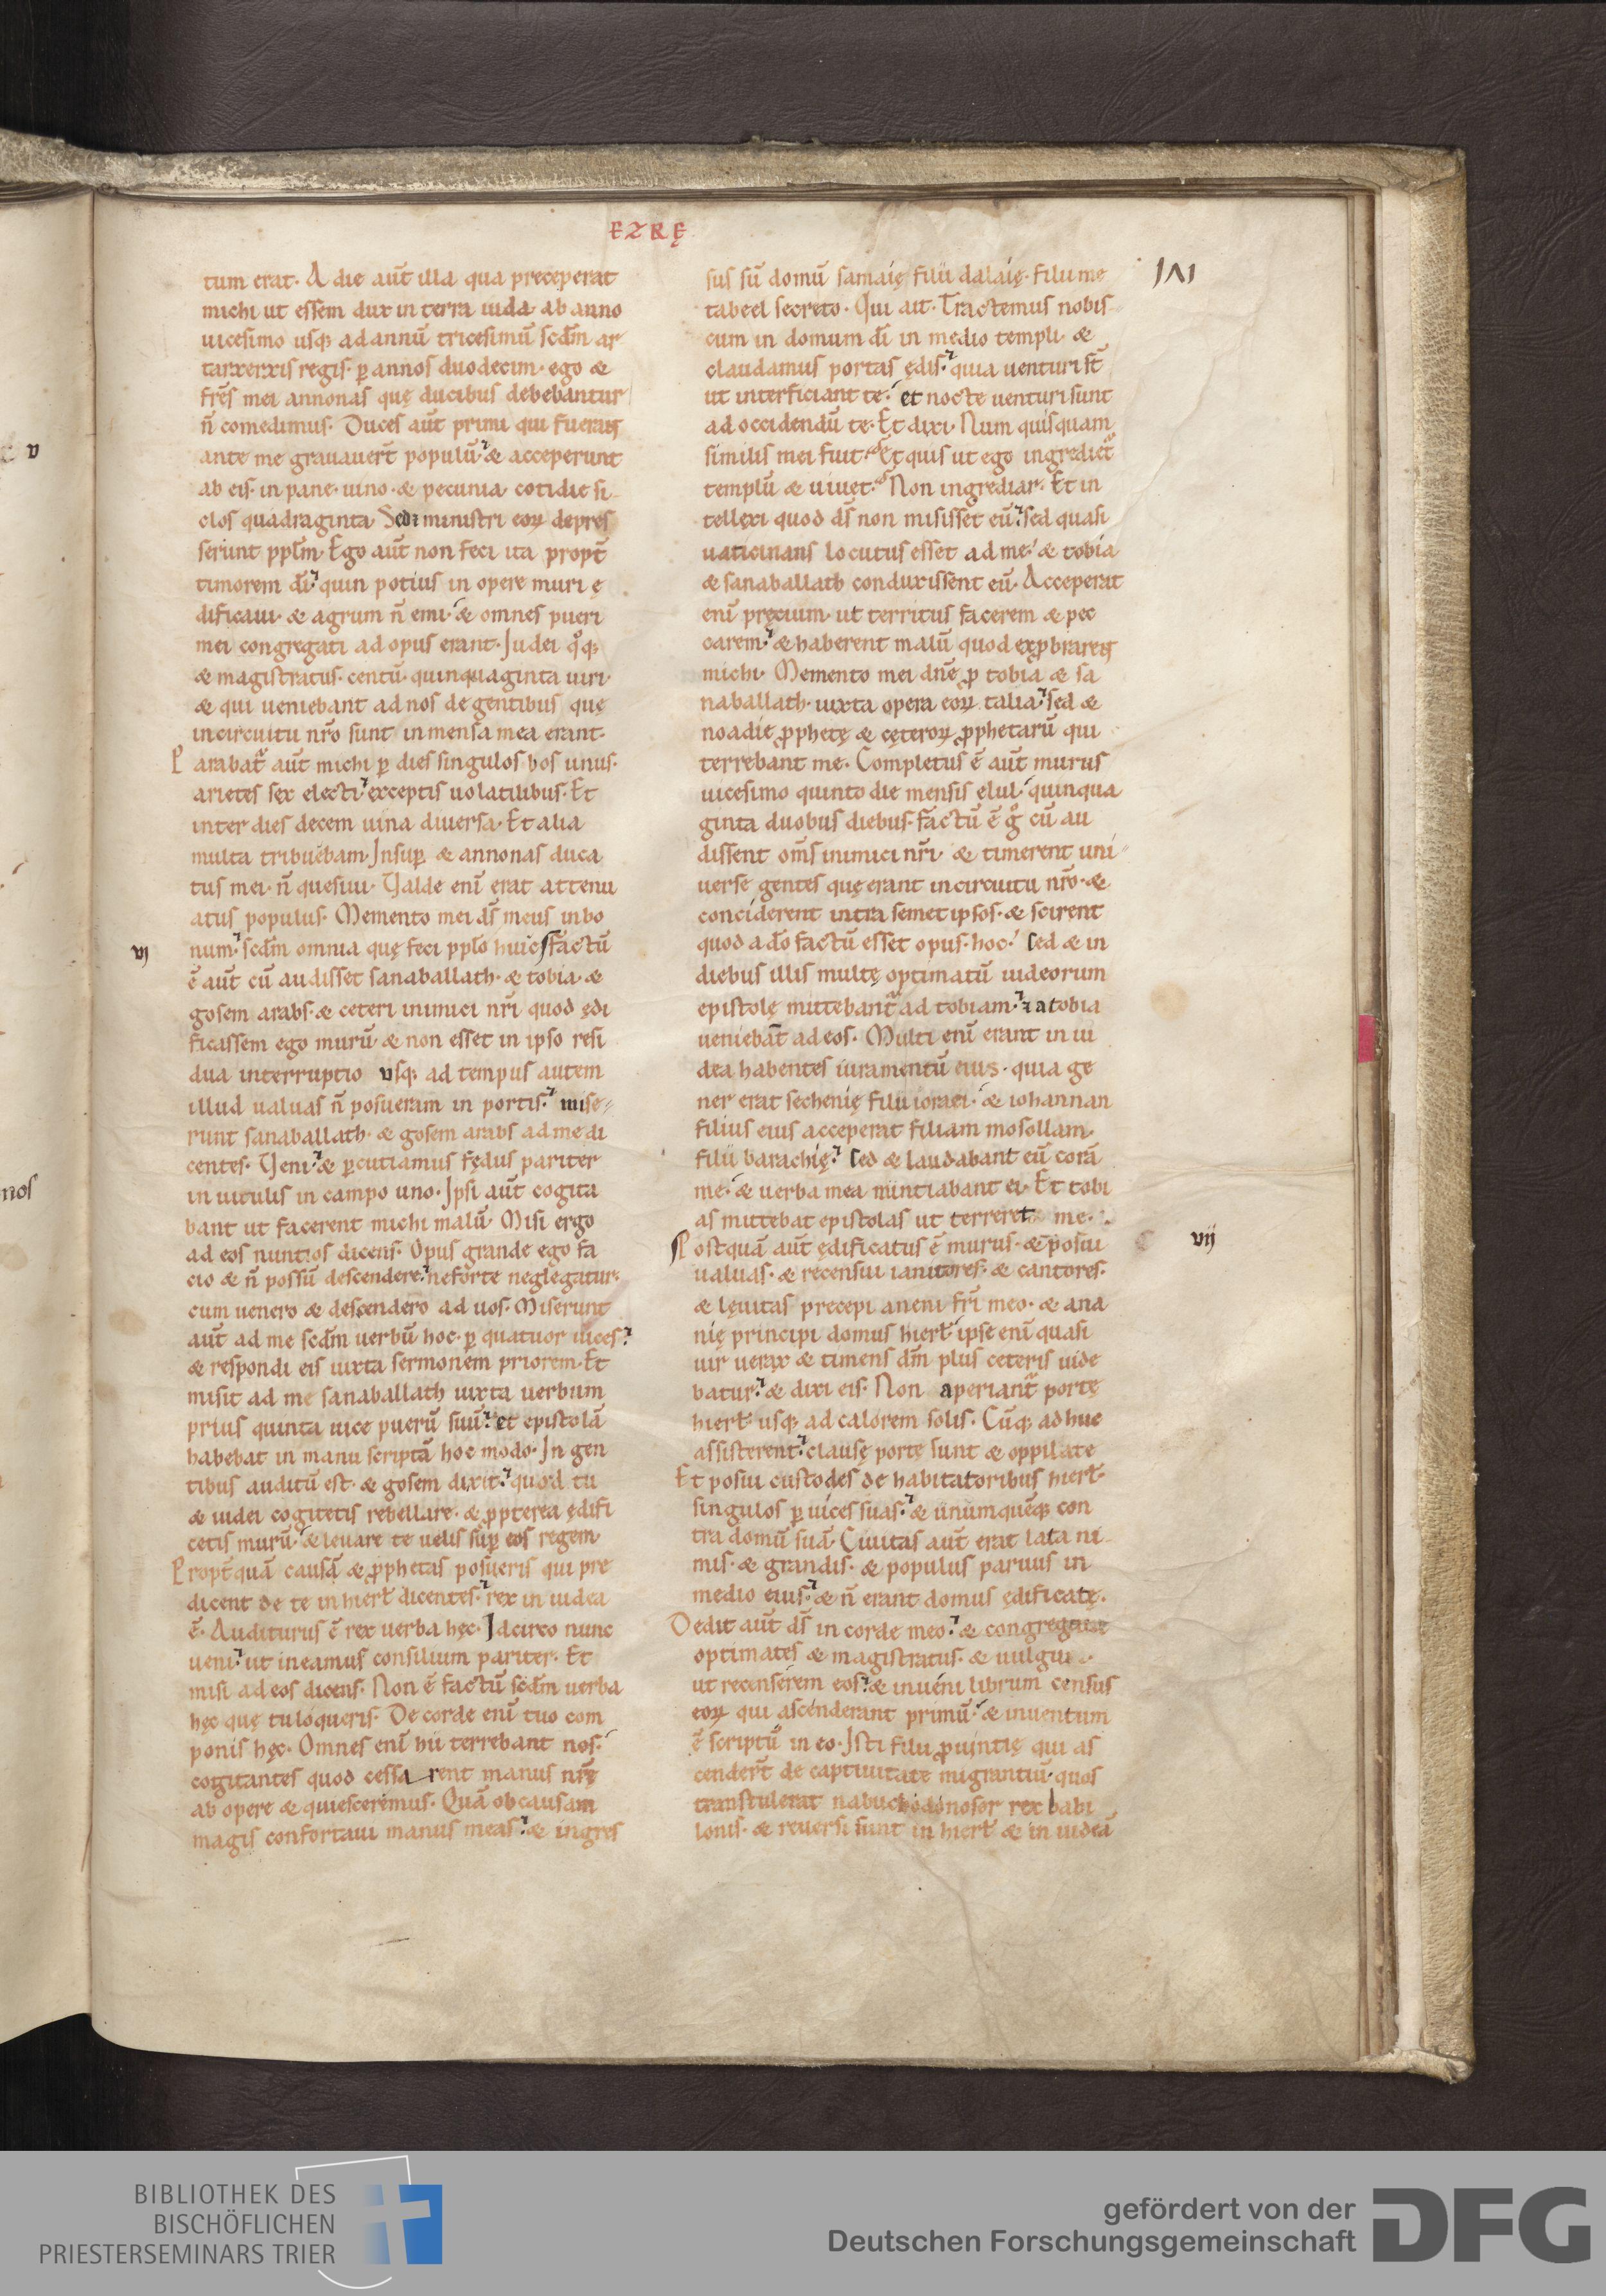 EZRĘ
tum erat· A die aut̄ illa qua preceperat
michi ut essem dux in terra iuda ab anno
uicesimo usq; ad annū tricesimū scd̄m ar
tarxerxis regis· ꝑ annos duodecim· ego &
fr̄es mei annonas quę ducibus debebantur
n̄ comedimus· Duces aut̄ primi qui fuerunt
ante me grauauer̄t populū· & acceperunt
ab eis· in pane· uino· & pecunia cotidie si
clos quadraginta Sed ⁊ ministri eoꝝ depres
serunt ppl̄m· Ego aut̄ non feci ita propt̄
timorem dī· quin potius in opere muri ę
dificaui· & agrum n̄ emi· & omnes pueri
mei congregati ad opus erant· Judei qͦq;
& magistratus· centū· quinquaginta uiri·
& qui ueniebant ad nos de gentibus quę
in circuitu nr̄o sunt in mensa mea erant·
Parabat᷑ aut̄ michi ꝑ dies singulos bos unus·
arietes sex electi· exceptis uolatilibus· Et
inter dies decem uina diuersa· Et alia
multa tribuebam· Insuꝑ & annonas duca
tus mei· n̄ quesiui· Valde enī erat attenu
atus populus· Memento mei ds̄ meus in bo
num· scd̄m omnia quę feci pplo huic factū
vj
ē aut̄ cū audisset sanaballath· & tobia· &
gosem arabs· & ceteri inimici nr̄i quod ędi
ficassem ego murū· & non esset in ipso resi
dua interruptio usq; ad tempus autem
illud ualuas n̄ posueram in portis· mise
runt sanaballath· & gosem arabs ad me di
centes· Veni· & ꝑcutiamus fędus pariter
in uiculis in campo uno· Ipsi aut̄ cogita
bant ut facerent michi malū· Misi ergo
ad eos nuntios dicens· Opus grande ego fa
cio & n̄ possū descendere· ne forte neglegatur·
cum uenero & descendero ad uos· Miserunt
aut̄ ad me scd̄m uerbū hoc· ꝑ quatuor uices·
& respondi eis iuxta sermonem priorem· Et
misit ad me sanaballath iuxta uerbum
prius quinta uice puerū suū· et epistolā
habebat in manu scriptā hoc modo· In gen
tibus auditū est· & gosem dixit· quod tu
& iudei cogitetis rebellare· & ꝓpterea ędifi
cetis murū· & leuare te uelis suꝑ eos regem·
Propt̄ quā causā & ꝓphetas posueris qui pre
dicent de te in hierl̄ dicentes· rex in iudea
ē· Auditurus ē rex uerba hęc· Idcirco nunc
ueni· ut ineamus consilium pariter· Et
misi ad eos dicens· Non ē factū scd̄m uerba
hęc quę tu loqueris· De corde enī tuo com
ponis hęc· Omnes enī hii terrebant nos·
cogitantes quod cessarent manus nr̄ę
ab opere & quiesceremus· Quā ob causam
magis confortaui manus meas· & ingres
sus sū domū samaię filii dalaię· filii me
tabeel secreto· Qui ait· Tractemus nobis
cum in domum dī in medio templi· &
claudamus portas ędis· quia uenturi st̄
ut interficiant te· et nocte uenturi sunt
ad occidendū te· Et dixi· Num quisquam
similis mei fuit· Et quis ut ego ingrediet᷑
templū & uiuet· Non ingrediar· Et in
tellexi quod ds̄ non misisset eū· sed quasi
uaticinans locutus esset ad me· & tobia
& sanaballath conduxissent eū· Acceperat
enī pręcium· ut territus facerem & pec
carem· & haberent malū quod exꝓbrarent
michi· Memento mei dn̄e ꝓ tobia & sa
naballath· iuxta opera eoꝝ talia· sed &
noadię ꝓphetę & cęteroꝝ ꝓphetarū qui
terrebant me· Completus ē aut̄ murus
uicesimo quinto die mensis elul· quinqua
ginta duobus diebus· factū ē gͦ cū au
dissent om̄s inimici nr̄i· & timerent uni
uerse gentes quę erant in circuitu nr̄o· &
conciderent intra semet ipsos· & scirent
quod a dō factū esset opus· hoc· sed & in
diebus illis multę optimatū iudeorum
epistolę mittebant᷑ ad tobiam· ⁊ a tobia
ueniebat̄ ad eos· Multi enī erant in iu
dea habentes iuramentū eius· quia ge
ner erat sechenię filii iorael· & iohannan
filius eius acceperat filiam mosollam·
filii barachię· sed & laudabant eū corā
me· & uerba mea nuntiabant ei· Et tobi
as mittebat epistolas ut terreret me·
Postquā aut̄ ędificatus ē murus· & posui
vij
ualuas· & recensui ianitores· & cantores·
& lęuitas precepi aneni fr̄i meo· & ana
nię principi domus hierl̄· ipse enī quasi
uir uerax & timens dm̄ plus ceteris uide
batur· & dixi eis· Non aperiant᷑ portę
hierl̄· usq; ad calorem solis· Cūq; adhuc
assisterent· clausę porte sunt & oppilate
Et posui custodes de habitatoribus hierl̄·
singulos ꝑ uices suas· & unumquēq; con
tra domū suā· Ciuitas aut̄ erat lata ni
mis· & grandis· & populus paruus in
medio eius· & n̄ erant domus ędificatę·
Dedit aut̄ ds̄ in corde meo· & congregaui
optimates & magistratus· & uulgu
ut recenserem eos· & inueni librum census
eoꝝ qui ascenderant primū· & inuentum
ē scriptū in eo· Isti filii ꝓuintię qui as
cender̄t de captiuitate migrantiū· quos
transtulerat nabuchodonosor rex babi
lonis· & reuersi sunt in hierl̄ & in iudeā
v
nos
BIBLIOTHEK DES
BISCHÖFLICHEN
PRIESTERSEMINARS TRIER
gefördert von der
Deutschen Forschungsgemeinschaft
DFG